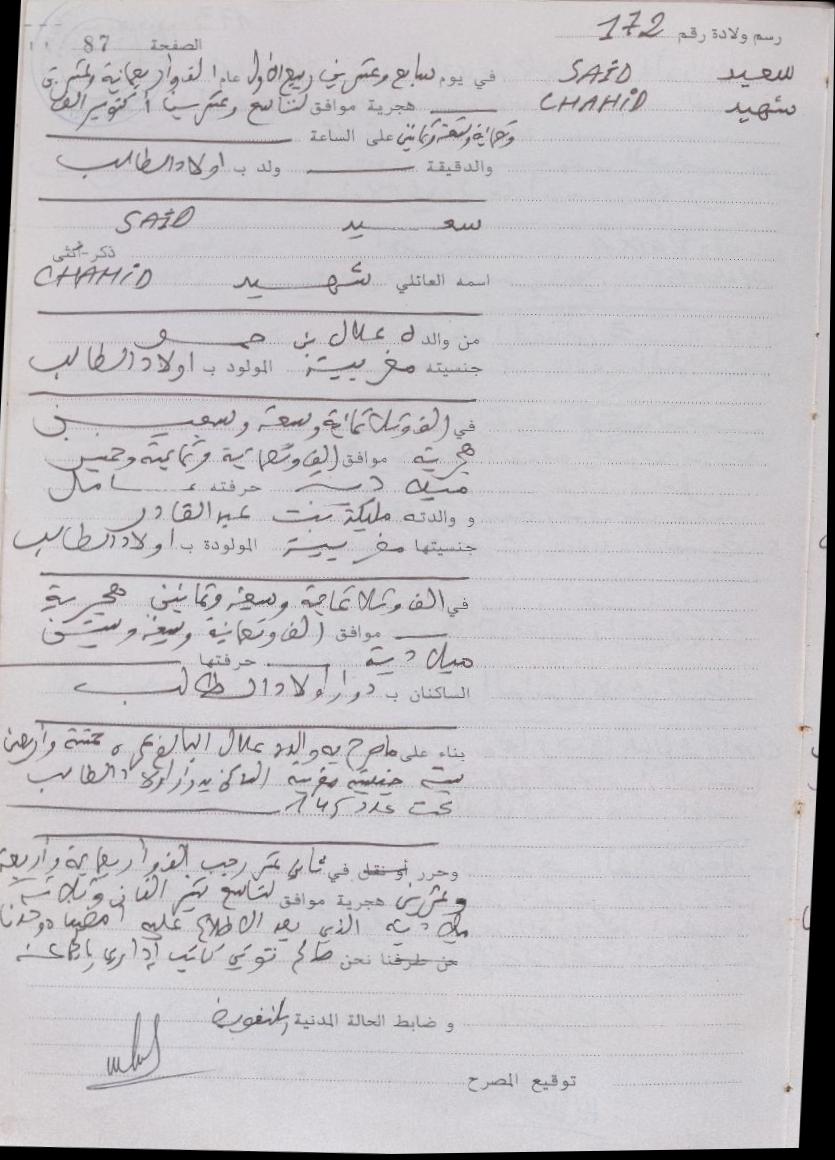 رسم ولادة رقم 172
الصفحة 87
سعيد SAID
شهيد CHAHID
في يوم سابع وعشرين ربيع الأول عام الف واربعمائة وعشرة
هجرية موافق لتاسع وعشرين أكتوبر الف
وتسعمائة وتسعة وثمانين على الساعة
والدقيقة ولد ب اولاد الطالب
سعيد SAID
ذكر - أنثى
اسمه العائلي شهيد CHAHID
من والده علال بن حمو
جنسيته مغربية المولود ب اولاد الطالب
في الف وثلاثمائة وسبعة وسبعين
هجرية موافق الف وتسعمائة وثمانية وخمسين
ميلادية حرفته عامل
و والدته مليكة بنت عبد القادر
جنسيتها مغربية المولودة ب اولاد الطالب
في الف وثلاثمائة وسبعة وثمانين هجرية
موافق الف وتسعمائة وسبعة وستين
ميلادية حرفتها
الساكنان ب دوار اولاد الطالب
بناء على ما صرح به والده علال البالغ عمره ستة وأربعين
سنة جنسيته مغربية الساكن بدوار اولاد الطالب
تحت عدد 145
وحرر او نقل في ثاني عشر رجب الف واربعمائة وأربعة
وعشرين هجرية موافق لتاسع شتنبر الفان وثلاثة
ميلادية الذي بعد الاطلاع عليه امضينا وحدنا
من طرفنا نحن كاتب إداري بالجماعة
و ضابط الحالة المدنية بالتفويض
توقيع المصرح